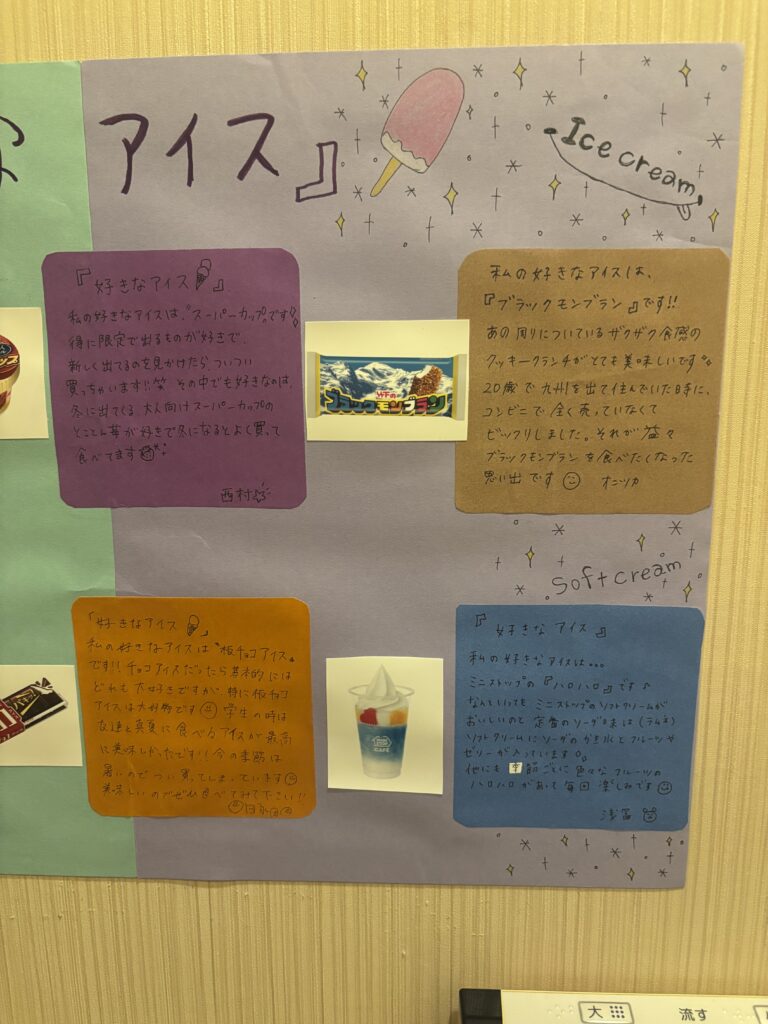 アイス』
Ice cream
『好きなアイス』
私の好きなアイスは、"スーパーカップ"です!
得に限定で出るものが好きで、
新しく出てるのを見かけたら、ついつい
買っちゃいます!!笑 その中でも好きなのは、
冬に出てくる 大人向けスーパーカップの
とことん苺が好きで冬になるとよく買って
食べてます
西村
竹下の
ブラックモンブラン
私の好きなアイスは、
『ブラックモンブラン』です!!
あの周りについているザクザク食感の
クッキークランチがとても美味しいです。
20歳で九州を出て住んでいた時に、
コンビニで全く売っていなくて
ビックリしました。それが益々
ブラックモンブランを食べたくなった
思い出です オニツカ
Soft cream
「好きなアイス」
私の好きなアイスは"板チョコアイス"
です!!チョコアイスだったら基本的には
どれも大好きですが、特に板チョコ
アイスは大好物です 学生の時は
友達と真夏に食べるアイスが最高
に美味しかったです!!今の季節は
暑いのでつい買ってしまっています
美味しいのでぜひ食べてみて下さい!!
CAFE
『好きな アイス』
私の好きなアイスは...
ミニストップの『ハロハロ』です♪
なんといっても ミニストップのソフトクリームが
おいしいのと 定番のソーダ味は(ラムネ)
ソフトクリームにソーダのかき氷とフルーツや
ゼリーが入っています。
他にも 季節ごとに色々なフルーツの
ハロハロがあって毎回 楽しみです
大
流す